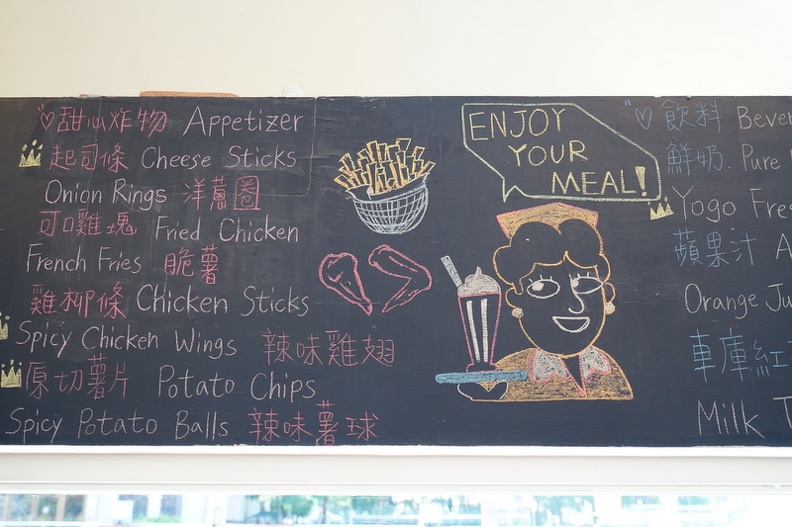 甜心炸物 Appetizer
起司條 Cheese Sticks
Onion Rings 洋蔥圈
可口雞塊 Fried Chicken
French Fries 脆薯
雞柳條 Chicken Sticks
Spicy Chicken Wings 辣味雞翅
原切薯片 Potato Chips
Spicy Potato Balls 辣味薯球
ENJOY
YOUR
MEAL!
飲料 Bever
鮮奶 Pure
Yogo Fres
蘋果汁 A
Orange Ju
車庫紅
Milk T